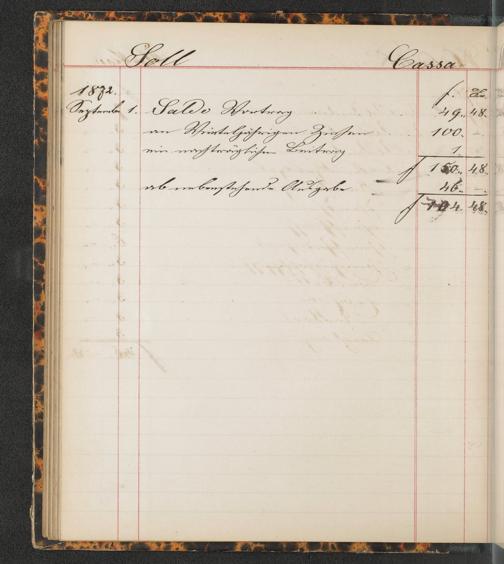 Soll Cassa
1872. f. x.
September 1. Saldo Vortrag 49. 48.
an Vierteljährigen Zinsen 100. —
ein nachträglicher Beitrag 1. —
f 150. 48.
ab nebenstehende Ausgabe 46. —
f 104. 48.